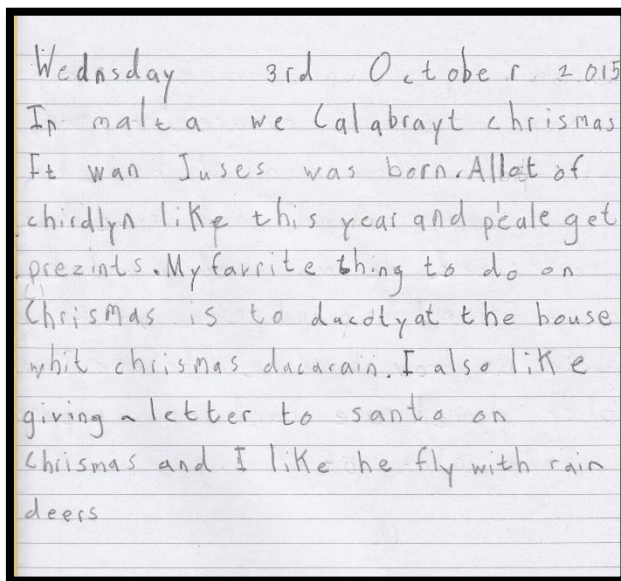 Wednsday 3rd October 2015
In malta we Calabrayt chrismas
It wan Juses was born. Allot of
chirdlyn like this year and peale get
prezints. My favrite thing to do on
Chrismas is to dacotyat the bouse
whit chrismas dacarain. I also like
giving a letter to santa on
Chrismas and I like he fly with rain
deers